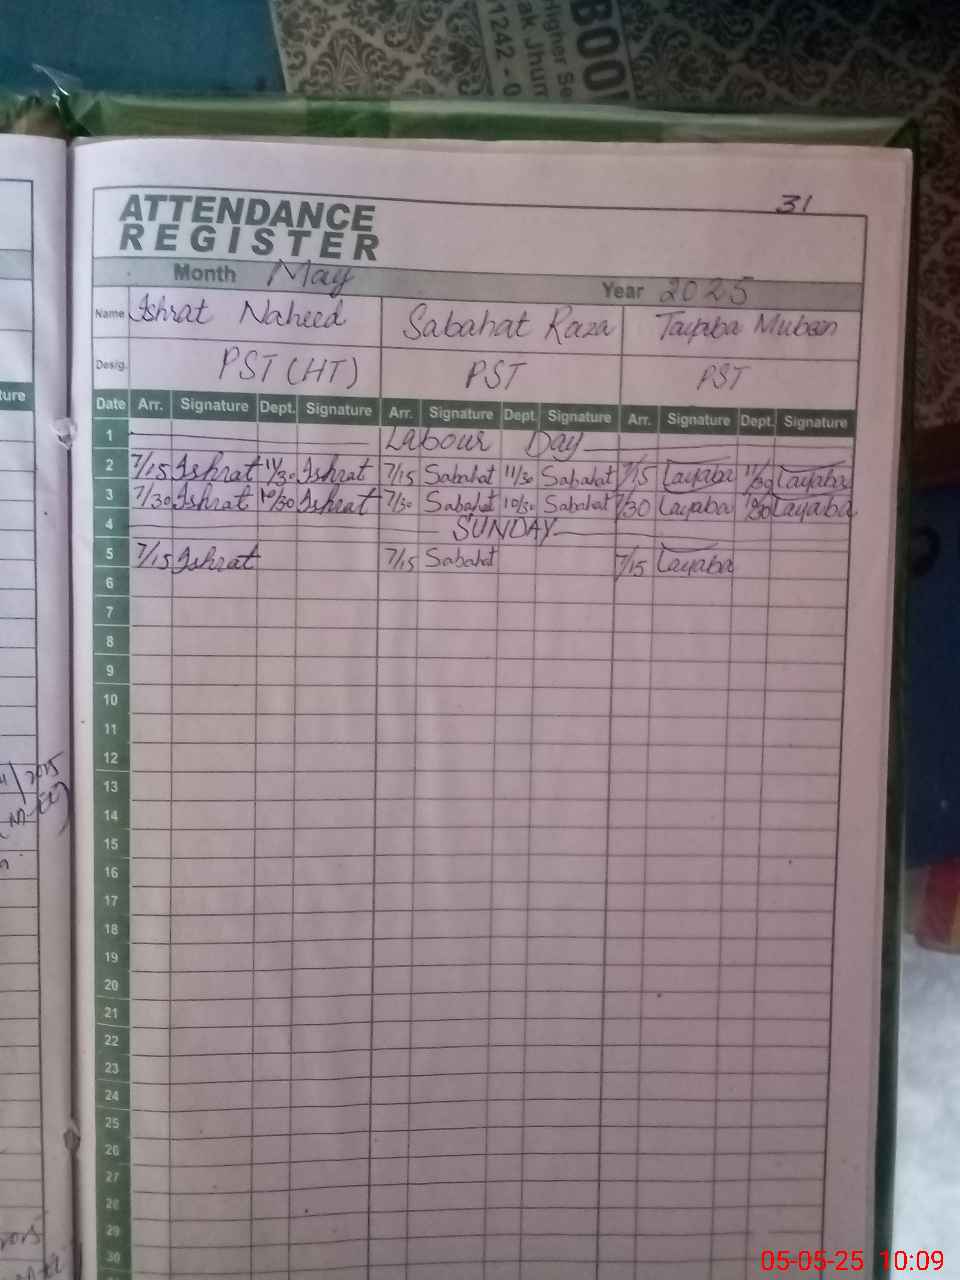 BOO
Highor Se
ak Jhum
11242 - 0
31
ATTENDANCE
REGISTER
Month May Year 2025
Name Ishrat Naheed Sabahat Raza Tayyba Mubeen
Desig. PST (HT) PST PST
ture
Date Arr. Signature Dept. Signature Arr. Signature Dept. Signature Arr. Signature Dept. Signature
1 Labour Day
2 7/15 Ishrat 11/30 Ishrat 7/15 Sabahat 11/30 Sabahat 7/15 Tayaba 11/30 Tayaba
3 7/30 Ishrat 10/30 Ishrat 7/30 Sabahat 10/30 Sabahat 7/30 Tayaba 10/30 Tayaba
4 SUNDAY
5 7/15 Ishrat 7/15 Sabahat 7/15 Tayaba
6
7
8
9
10
11
12
13
14
15
16
17
18
19
20
21
22
23
24
25
26
27
28
29
30
05-05-25 10:09